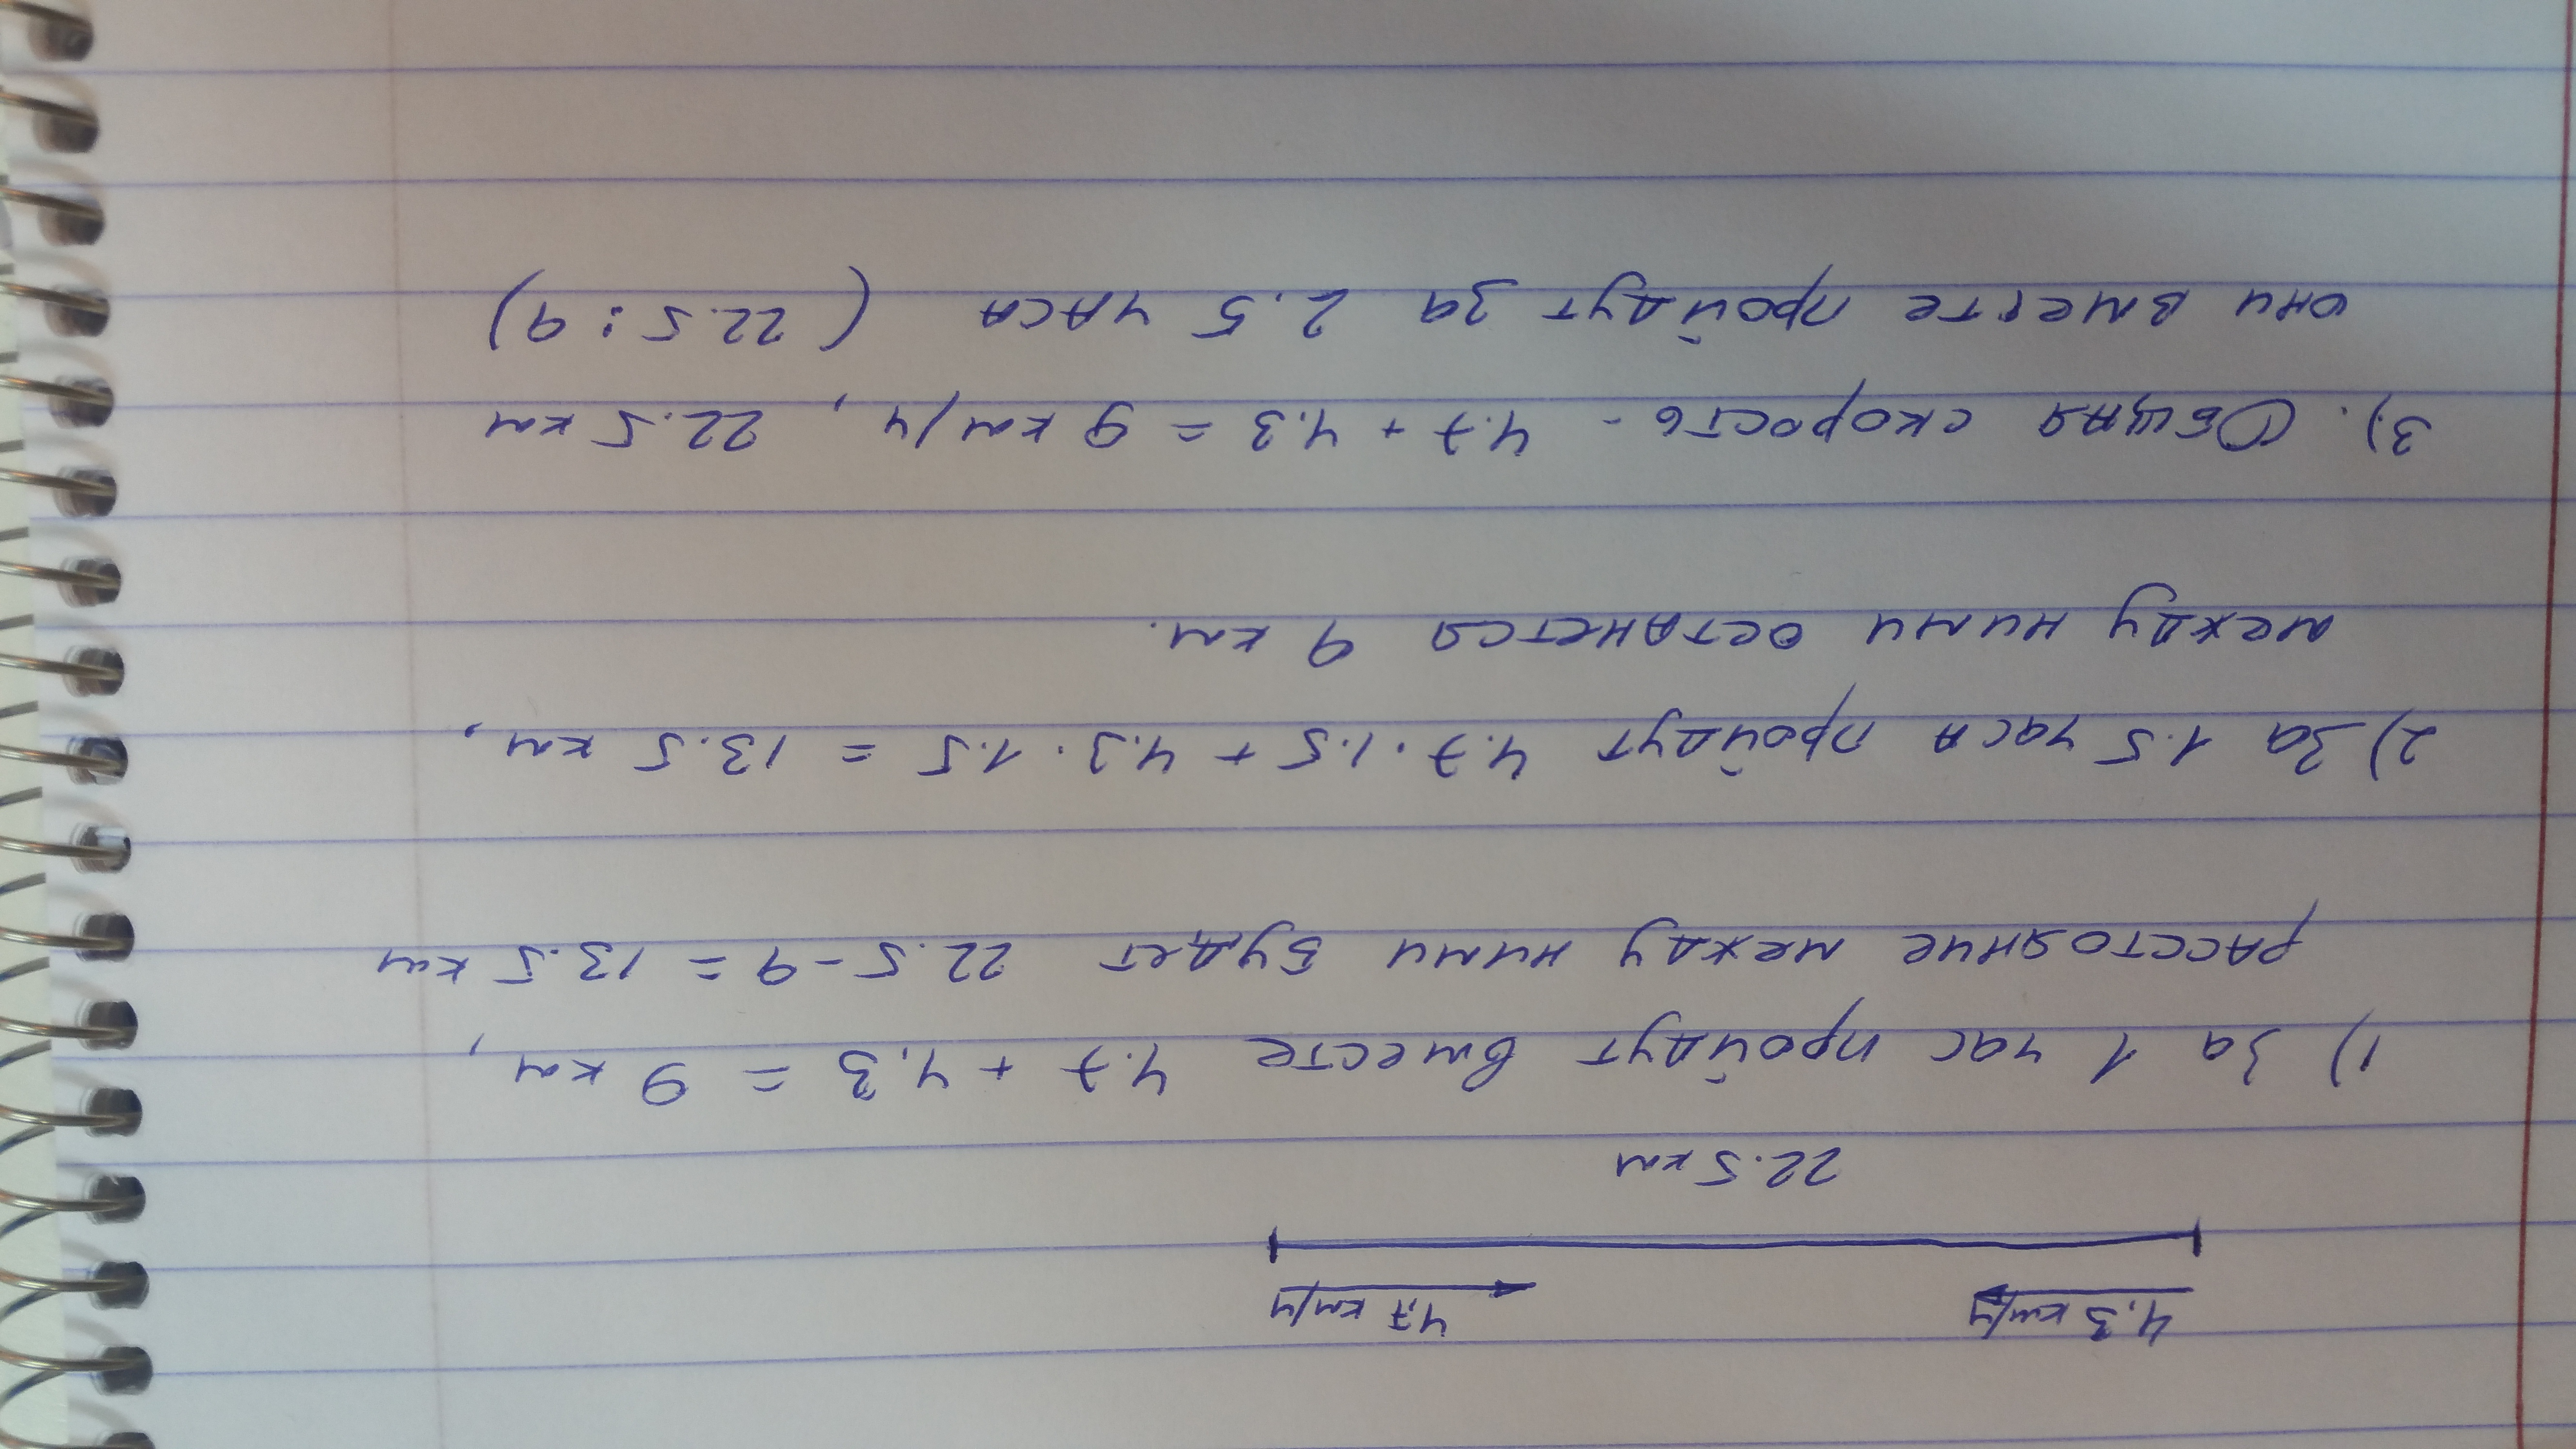 4,3 км/ч 4,7 км/ч
22.5 км
1) за 1 час пройдут вместе 4.7 + 4,3 = 9 км,
расстояние между ними будет 22.5 - 9 = 13.5 км
2) За 1.5 часа пройдут 4.7 · 1.5 + 4.3 · 1.5 = 13.5 км,
между ними останется 9 км.
3). Общая скорость - 4.7 + 4.3 = 9 км/ч, 22.5 км
они вместе пройдут за 2.5 часа (22.5 : 9)